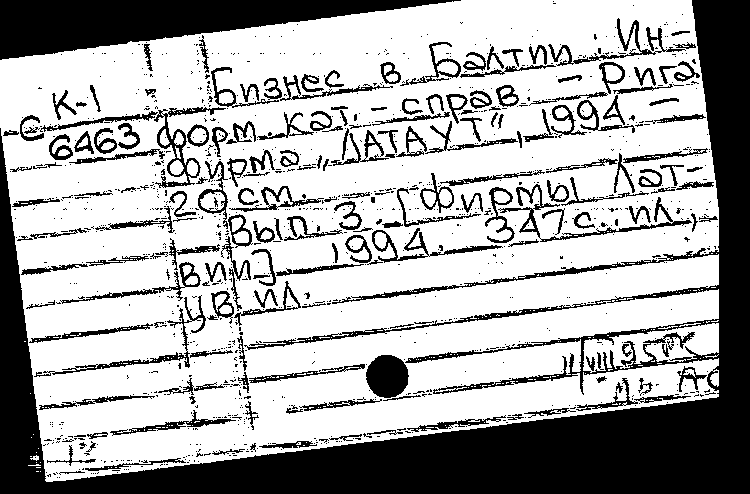 С К-1
6463
Бизнес в Балтии : Ин-
форм. кат. - справ. - Рига:
фирма „ЛАТАУТ", 1994. -
20 см.
Вып. 3: [Фирмы Лат-
вии]. 1994. 347 с.: ил.,
цв. ил.
11/VIII 95